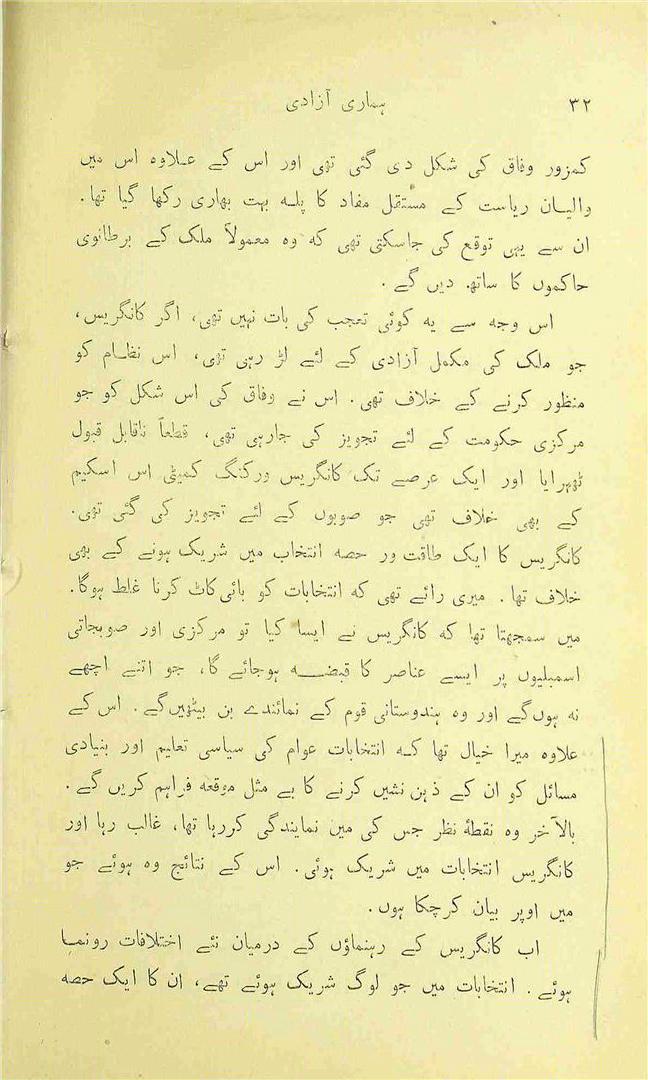 ۳۲
ہماری آزادی
کمزور وفاق کی شکل دی گئی تھی اور اس کے علاوہ اس میں
والیان ریاست کے مستقل مفاد کا پلہ بہت بھاری رکھا گیا تھا۔
ان سے یہی توقع کی جاسکتی تھی کہ وہ معمولاً ملک کے برطانوی
حاکموں کا ساتھ دیں گے۔
اس وجہ سے یہ کوئی تعجب کی بات نہیں تھی، اگر کانگریس،
جو ملک کی مکمل آزادی کے لئے لڑ رہی تھی، اس نظام کو
منظور کرنے کے خلاف تھی۔ اس نے وفاق کی اس شکل کو جو
مرکزی حکومت کے لئے تجویز کی جارہی تھی، قطعاً ناقابل قبول
ٹھہرایا اور ایک عرصے تک کانگریس ورکنگ کمیٹی اس اسکیم
کے بھی خلاف تھی جو صوبوں کے لئے تجویز کی گئی تھی۔
کانگریس کا ایک طاقت ور حصہ انتخاب میں شریک ہونے کے بھی
خلاف تھا۔ میری رائے تھی کہ انتخابات کو بائی کاٹ کرنا غلط ہوگا۔
میں سمجھتا تھا کہ کانگریس نے ایسا کیا تو مرکزی اور صوبجاتی
اسمبلیوں پر ایسے عناصر کا قبضہ ہوجائے گا، جو اتنے اچھے
نہ ہوں گے اور وہ ہندوستانی قوم کے نمائندے بن بیٹھیں گے۔ اس کے
علاوہ میرا خیال تھا کہ انتخابات عوام کی سیاسی تعلیم اور بنیادی
مسائل کو ان کے ذہن نشیں کرنے کا بے مثل موقعہ فراہم کریں گے۔
بالآخر وہ نقطۂ نظر جس کی میں نمایندگی کررہا تھا، غالب رہا اور
کانگریس انتخابات میں شریک ہوئی۔ اس کے نتائج وہ ہوئے جو
میں اوپر بیان کرچکا ہوں۔
اب کانگریس کے رہنماؤں کے درمیان نئے اختلافات رونما
ہوئے۔ انتخابات میں جو لوگ شریک ہوئے تھے، ان کا ایک حصہ